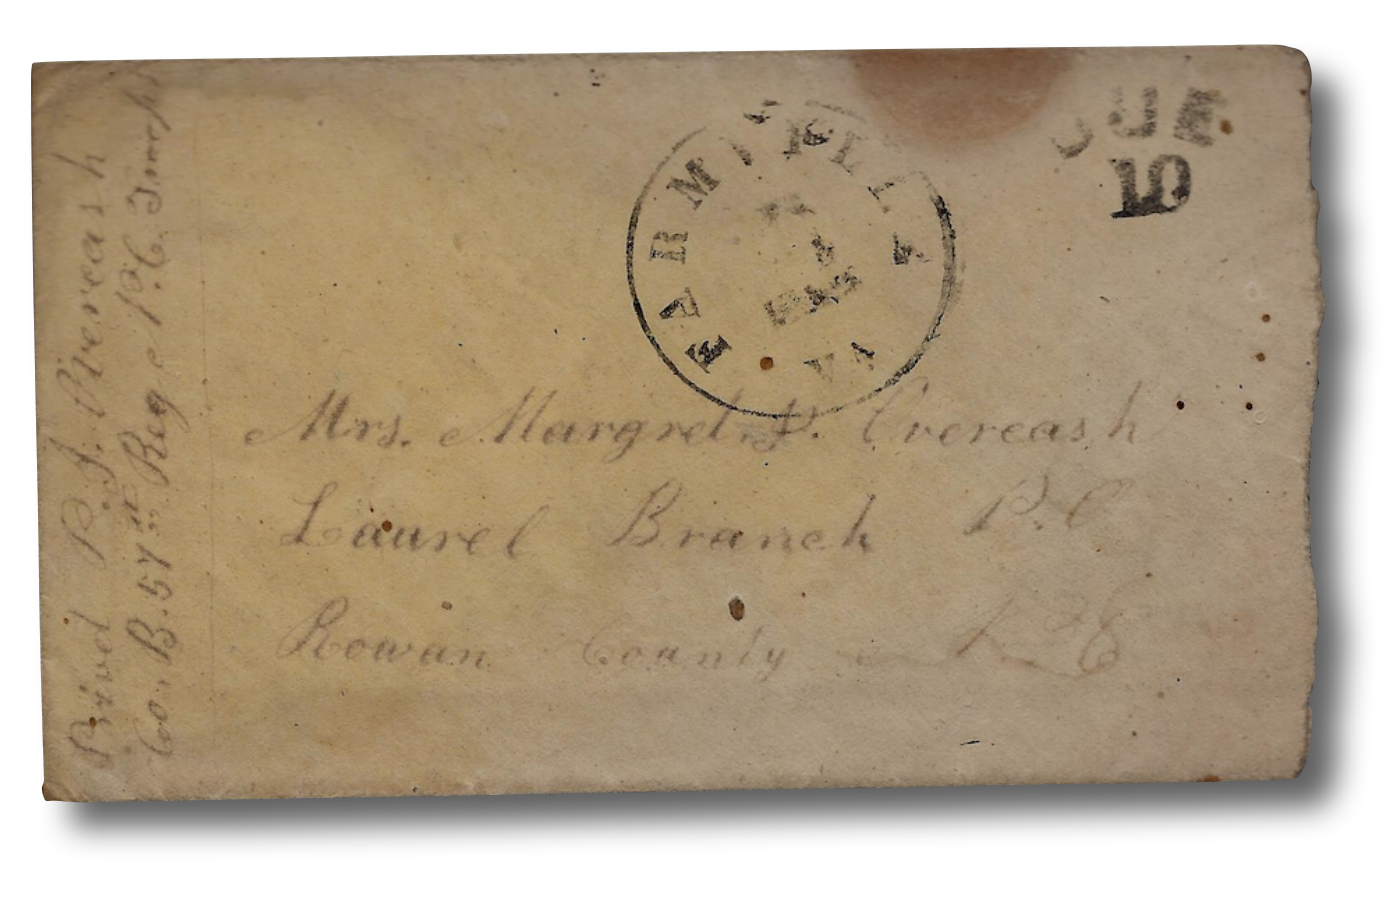 Privet P. J. Overcash
Co. B. 57th Reg N. C. Troops
FARMVILLE
VA
DUE
10
Mrs. Margret Overcash
Laurel Branch P. O
Rowan County N C